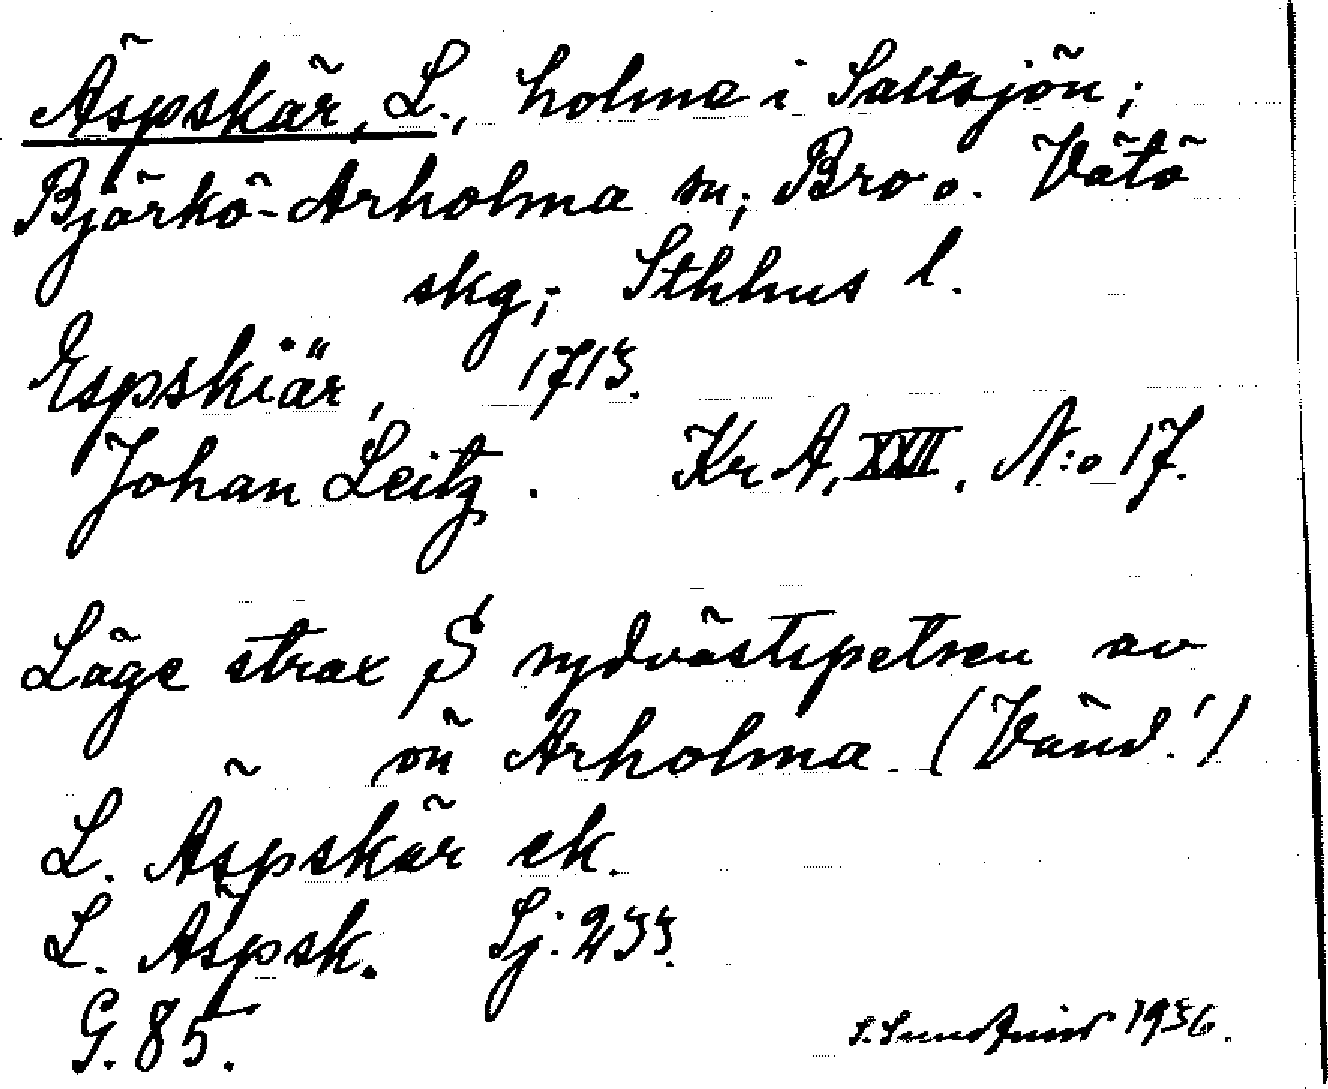 Äspskär, L., holme i Saltsjön;
Björkö-Arholma sn; Bro o. Vätö
skg; Sthlms l.
Espskiär, 1713.
Johan Leitz. Kr A, XXII, N:o 17.
Läge strax S sydvästspetsen av
ön Arholma (Vänd!)
L. Äspskär ek.
L. Äspsk. Sj: 233.
G. 85.
1936.